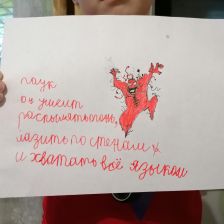 паук
он умеет
распылятьпоган,
лазить по стенам х
и хватать всё языком